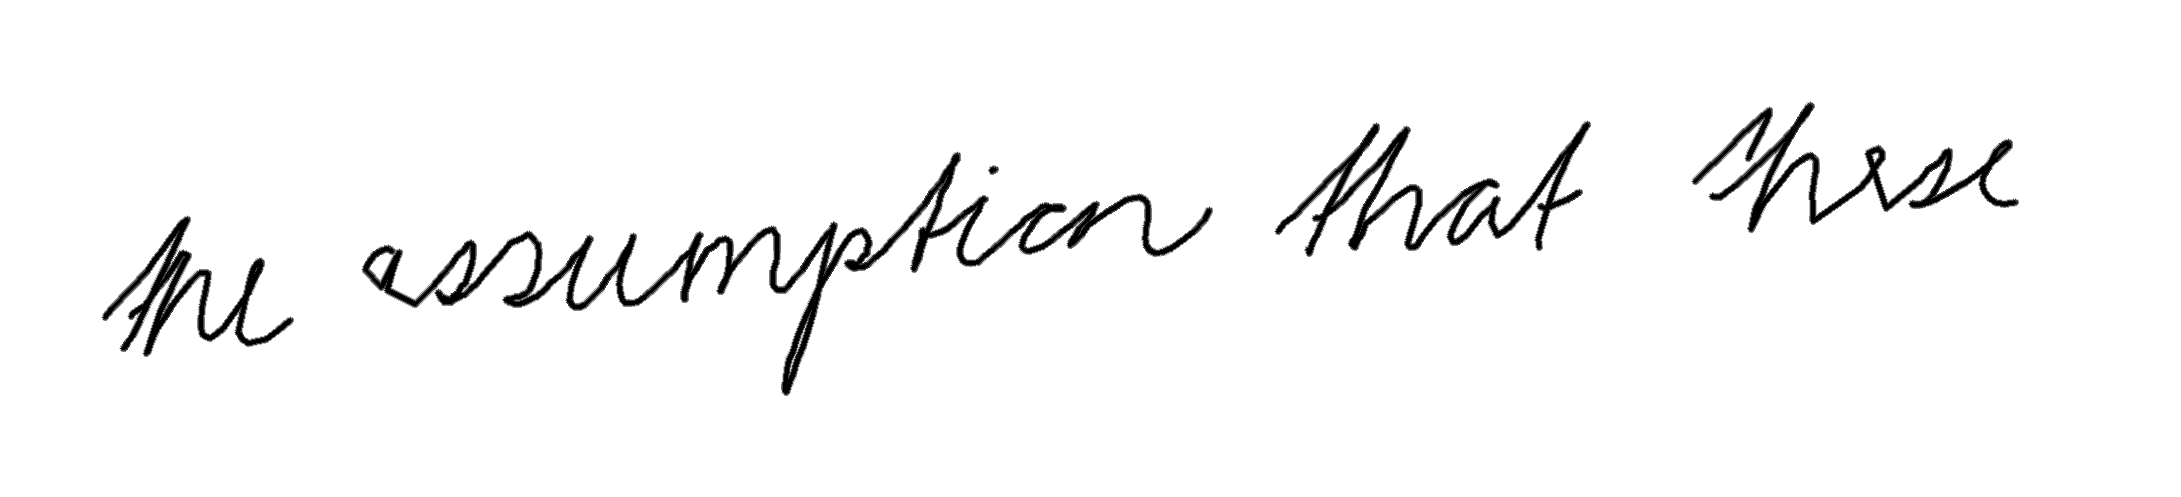 the assumption that these